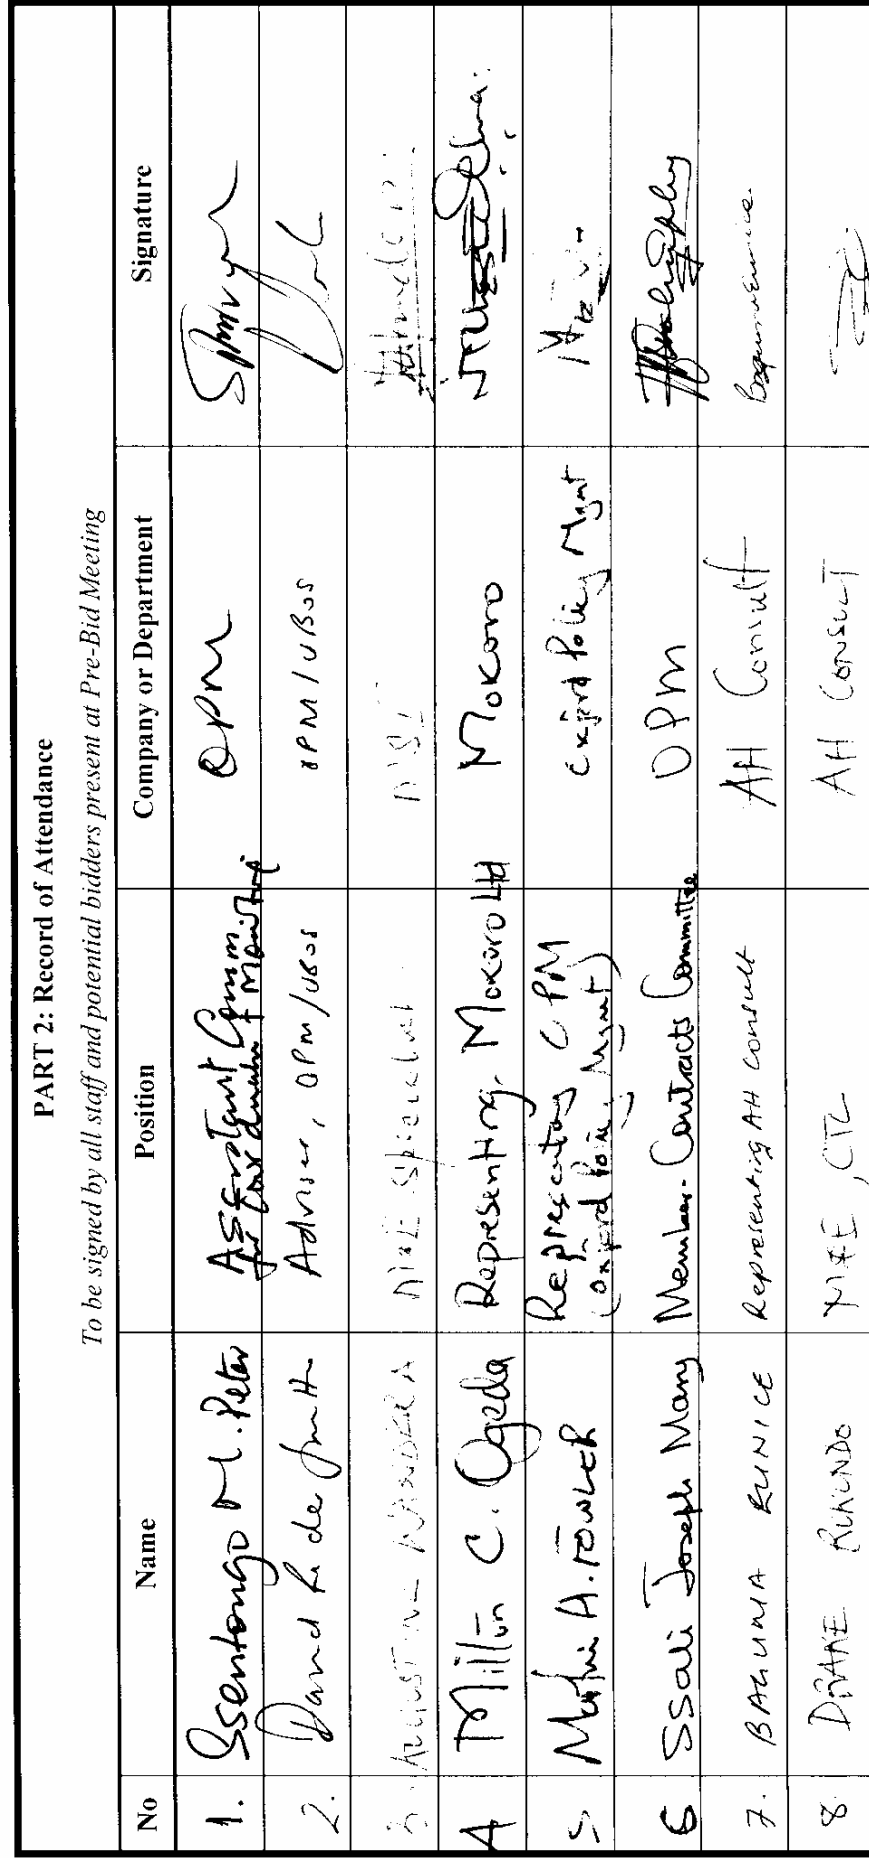 PART 2: Record of Attendance
To be signed by all staff and potential bidders present at Pre-Bid Meeting
No Name Position Company or Department Signature
1. Ssentongo M. Peter Assistant Comm. for Coordination & Monitoring OPM
2. David Adviser, OPM/UBOS OPM/UBOS
3. AUGUSTINE M&E Specialist
4 Milton C. Ogada Representing Mokoro Ltd Mokoro
5 A. FOWLER Representing OPM (Oxford Policy Mgmt) Oxford Policy Mgmt
6 Ssali Joseph Mary Member - Contracts Committee OPM
7. BAGUMA EUNICE Representing AH Consult AH Consult
8. DRAKE RUKUNDO M&E, CTL AH CONSULT